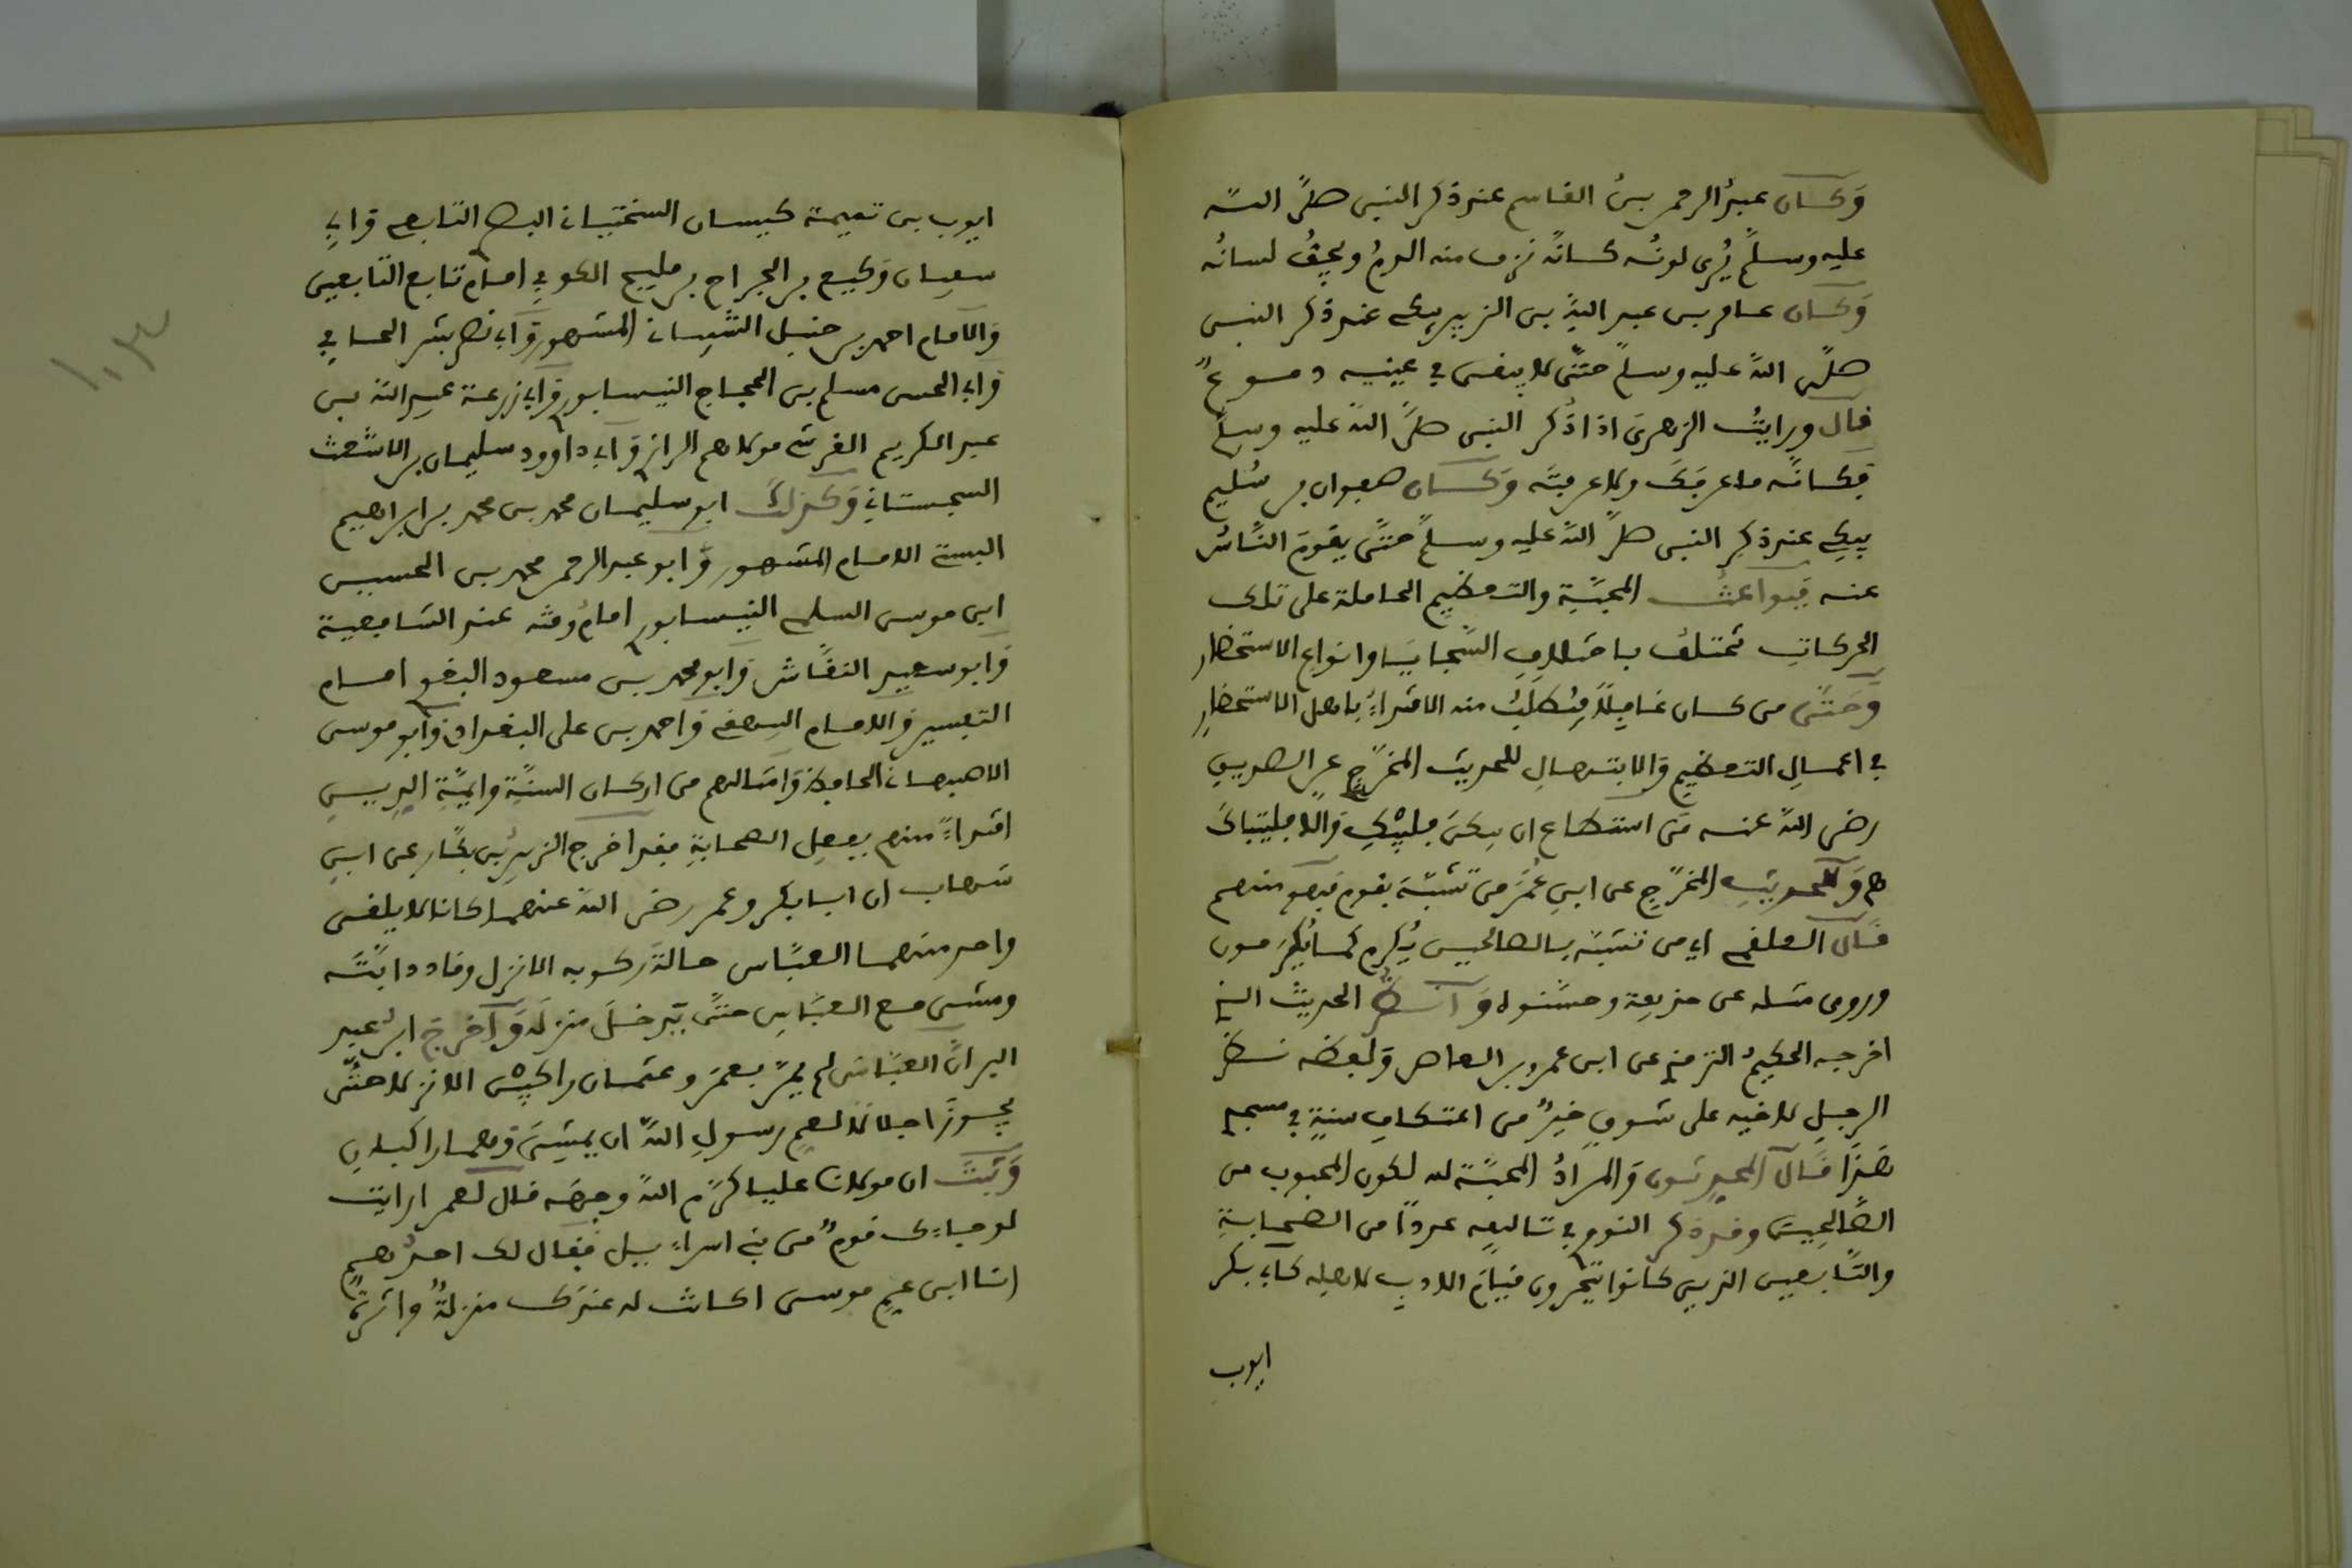 وَكان عبدُ الرحمن بنُ القاسم عند ذكر النبى صلى الله
عليه وسلم يُرى لونُه كانّه نزف منه الدمُ ويجفُّ لسانُه
وَكان عامر بن عبد اللهِ بن الزبير يبكى عند ذكر النبى
صلى الله عليه وسلم حتّى لا يبقى في عينيه دموعٌ
قال ورايتُ الزهرىَ اذا ذُكر النبى صلى الله عليه وسلم
فكانّه ما عرفك ولا عرفتَه وَكان صفوان بن سُليم
يبكي عند ذكر النبى صلى الله عليه وسلم حتّى يقومَ النّاسُ
عنه فبواعثُ المحبّةِ والتعظيمِ الحاملة على تلك
الحركاتِ تختلف باختلافِ السّجايا وانواع الاستحضار
وَحتّى من كان غافِلاً فيُطلَبُ منه الاقتداءُ باهل الاستحضار
في اعمالِ التعظيمِ والابتهالِ للحديث المخرّجِ عن الصديقِ
رضى الله عنه من استطاع ان يبكىَ فليبْكِ وَالا فليتباكَ
وَللحديثِ المخرّجِ عن ابنِ عُمَرَ من تشبّهَ بقوم فهو منهم
قال العلقمى اي من تشبّه بالصالحين يُكرم كما يُكرَمون
وروى مثله عن حذيفة وحسّنوه وَانظر الحديثَ الذي
اخرجه الحكيمُ الترمذي عن ابن عمرو بن العاص وَلفظه نظرُ
الرجلِ لاخيه على شوقٍ خيرٌ من اعتكافِ سنةٍ في مسجدي
هَذا قال المحدثون وَالمرادُ المحبّة له لكون المحبوب من
الصّالحين وقد ذكر النووي في تاليفه عددًا من الصحابةِ
والتّابعين الذين كانوا يَرون قيامَ الادبِ لاهله كابى بكر
ايوب
ايوب بن تميمة كيسان السختياني البصري التابعي وَابي
سفيان وَكيع بن الجراح بن مليح الكوفي امام تابع التّابعين
وَالامام احمد بن حنبل الشيباني المشهور وَابي نصر بشر الحافي
وَابي الحسن مسلم بن الحجاج النيسابوري وَابي زرعة عبيد الله بن
عبد الكريم القرشي مولاهم الرازي وَابي داوود سليمان بن الاشعث
السجستاني وَكذلك ابو سليمان محمد بن محمد بن ابراهيم
البستي الامام المشهور وَابو عبد الرحمن محمد بن الحسين
ابن موسى السلمي النيسابوري امامُ وقته عند الشافعية
وَابو سعيد النقّاش وَابو محمد بن مسعود البغوي امام
التفسير وَالامام البيهقي وَاحمد بن على البغدادي وَابو موسى
الاصبهاني الحافظ وَامثالهم من اركان السنّةِ وايمّةِ الدينِ
اقتداءً منهم بفعلِ الصحابةِ فقد اخرج الزبيرُ بن بكّار عن ابنِ
شهاب ان ابا بكر وعمر رضى الله عنهما كانا لا يلقى
واحد منهما العبّاس حالةَ ركوبه الا نزل وقاد دابّتَه
ومشى مع العبّاسِ حتّى يَدخلَ منزلَه وَاخرج ابنُ عبد
البر انّ العبّاس لم يمرّ بعمرَ وعثمان راكبيْن الا نزلا حتّى
يجوزَ اجلالا لعمِ رسولِ اللهِ ان يمشيَ وَهما راكبانِ
وَثبتَ ان مولانا عليا كرّم اللهُ وجهَه قال لعمر ارايت
لو جاءك قومٌ من بني اسراءيل فقال لك احدُهم
انا ابن عمِ موسى اكانت له عندك منزلةٌ واثرةٌ